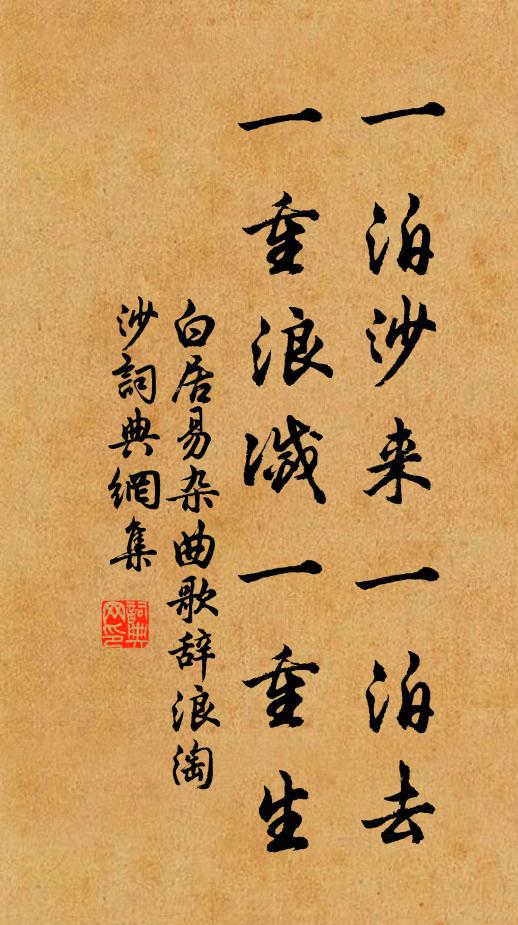 一泊沙来一泊去
一重浪滅一重生
白居易杂曲歌辞浪淘
沙詞典網集
詞典网印